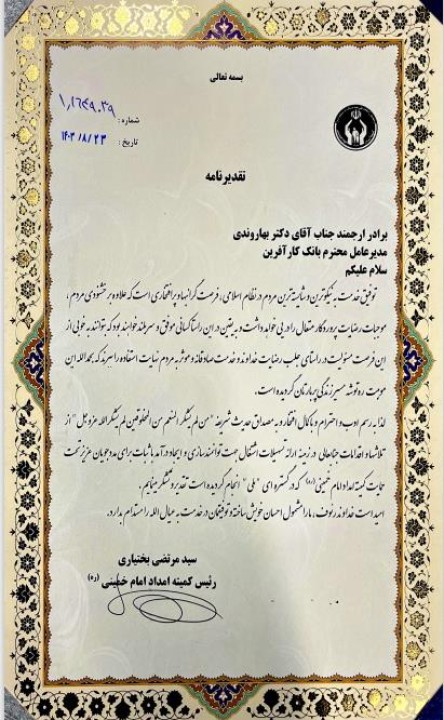 بسمه تعالی
شماره:
تاریخ: ۱۴۰۳/۸/۲۳
تقدیرنامه
برادر ارجمند جناب آقای دکتر بهاروندی
مدیرعامل محترم بانک کارآفرین
سلام علیکم
توفیق خدمت به نیکوترین و شایسته‌ترین مردم در نظام اسلامی، فرصت گرانبها و پرافتخاری است که علاوه بر خشنودی مردم،
موجبات رضایت پروردگار متعال را در پی خواهد داشت و به یقین در این راستا کسانی موفق و سربلند خواهند بود که توانند به خوبی از
این فرصت مسئولیت در راستای جلب رضایت خداوند و خدمت صادقانه و موثر به مردم نهایت استفاده را ببرند که بحمدالله این
موهبت ره‌توشه مسیر زندگی پربارتان گردیده است.
لذا به رسم ادب و احترام و با کمال افتخار و به مصداق حدیث شریفه "من لم یشکر المنعم من المخلوقین لم یشکر الله عزوجل" از
تلاشها و اقدامات جنابعالی در زمینه ارائه تسهیلات اشتغال جهت توانمندسازی و ایجاد درآمد باثبات برای مددجویان عزیز تحت
حمایت کمیته امداد امام خمینی (ره) که در گستره‌ای "ملی" انجام گردیده است تقدیر و تشکر می‌نمایم.
امید است خداوند رئوف، ما را مشمول احسان خویش ساخته و توفیقمان در خدمت به عیال الله را مستدام بدارد.
سید مرتضی بختیاری
رئیس کمیته امداد امام خمینی (ره)